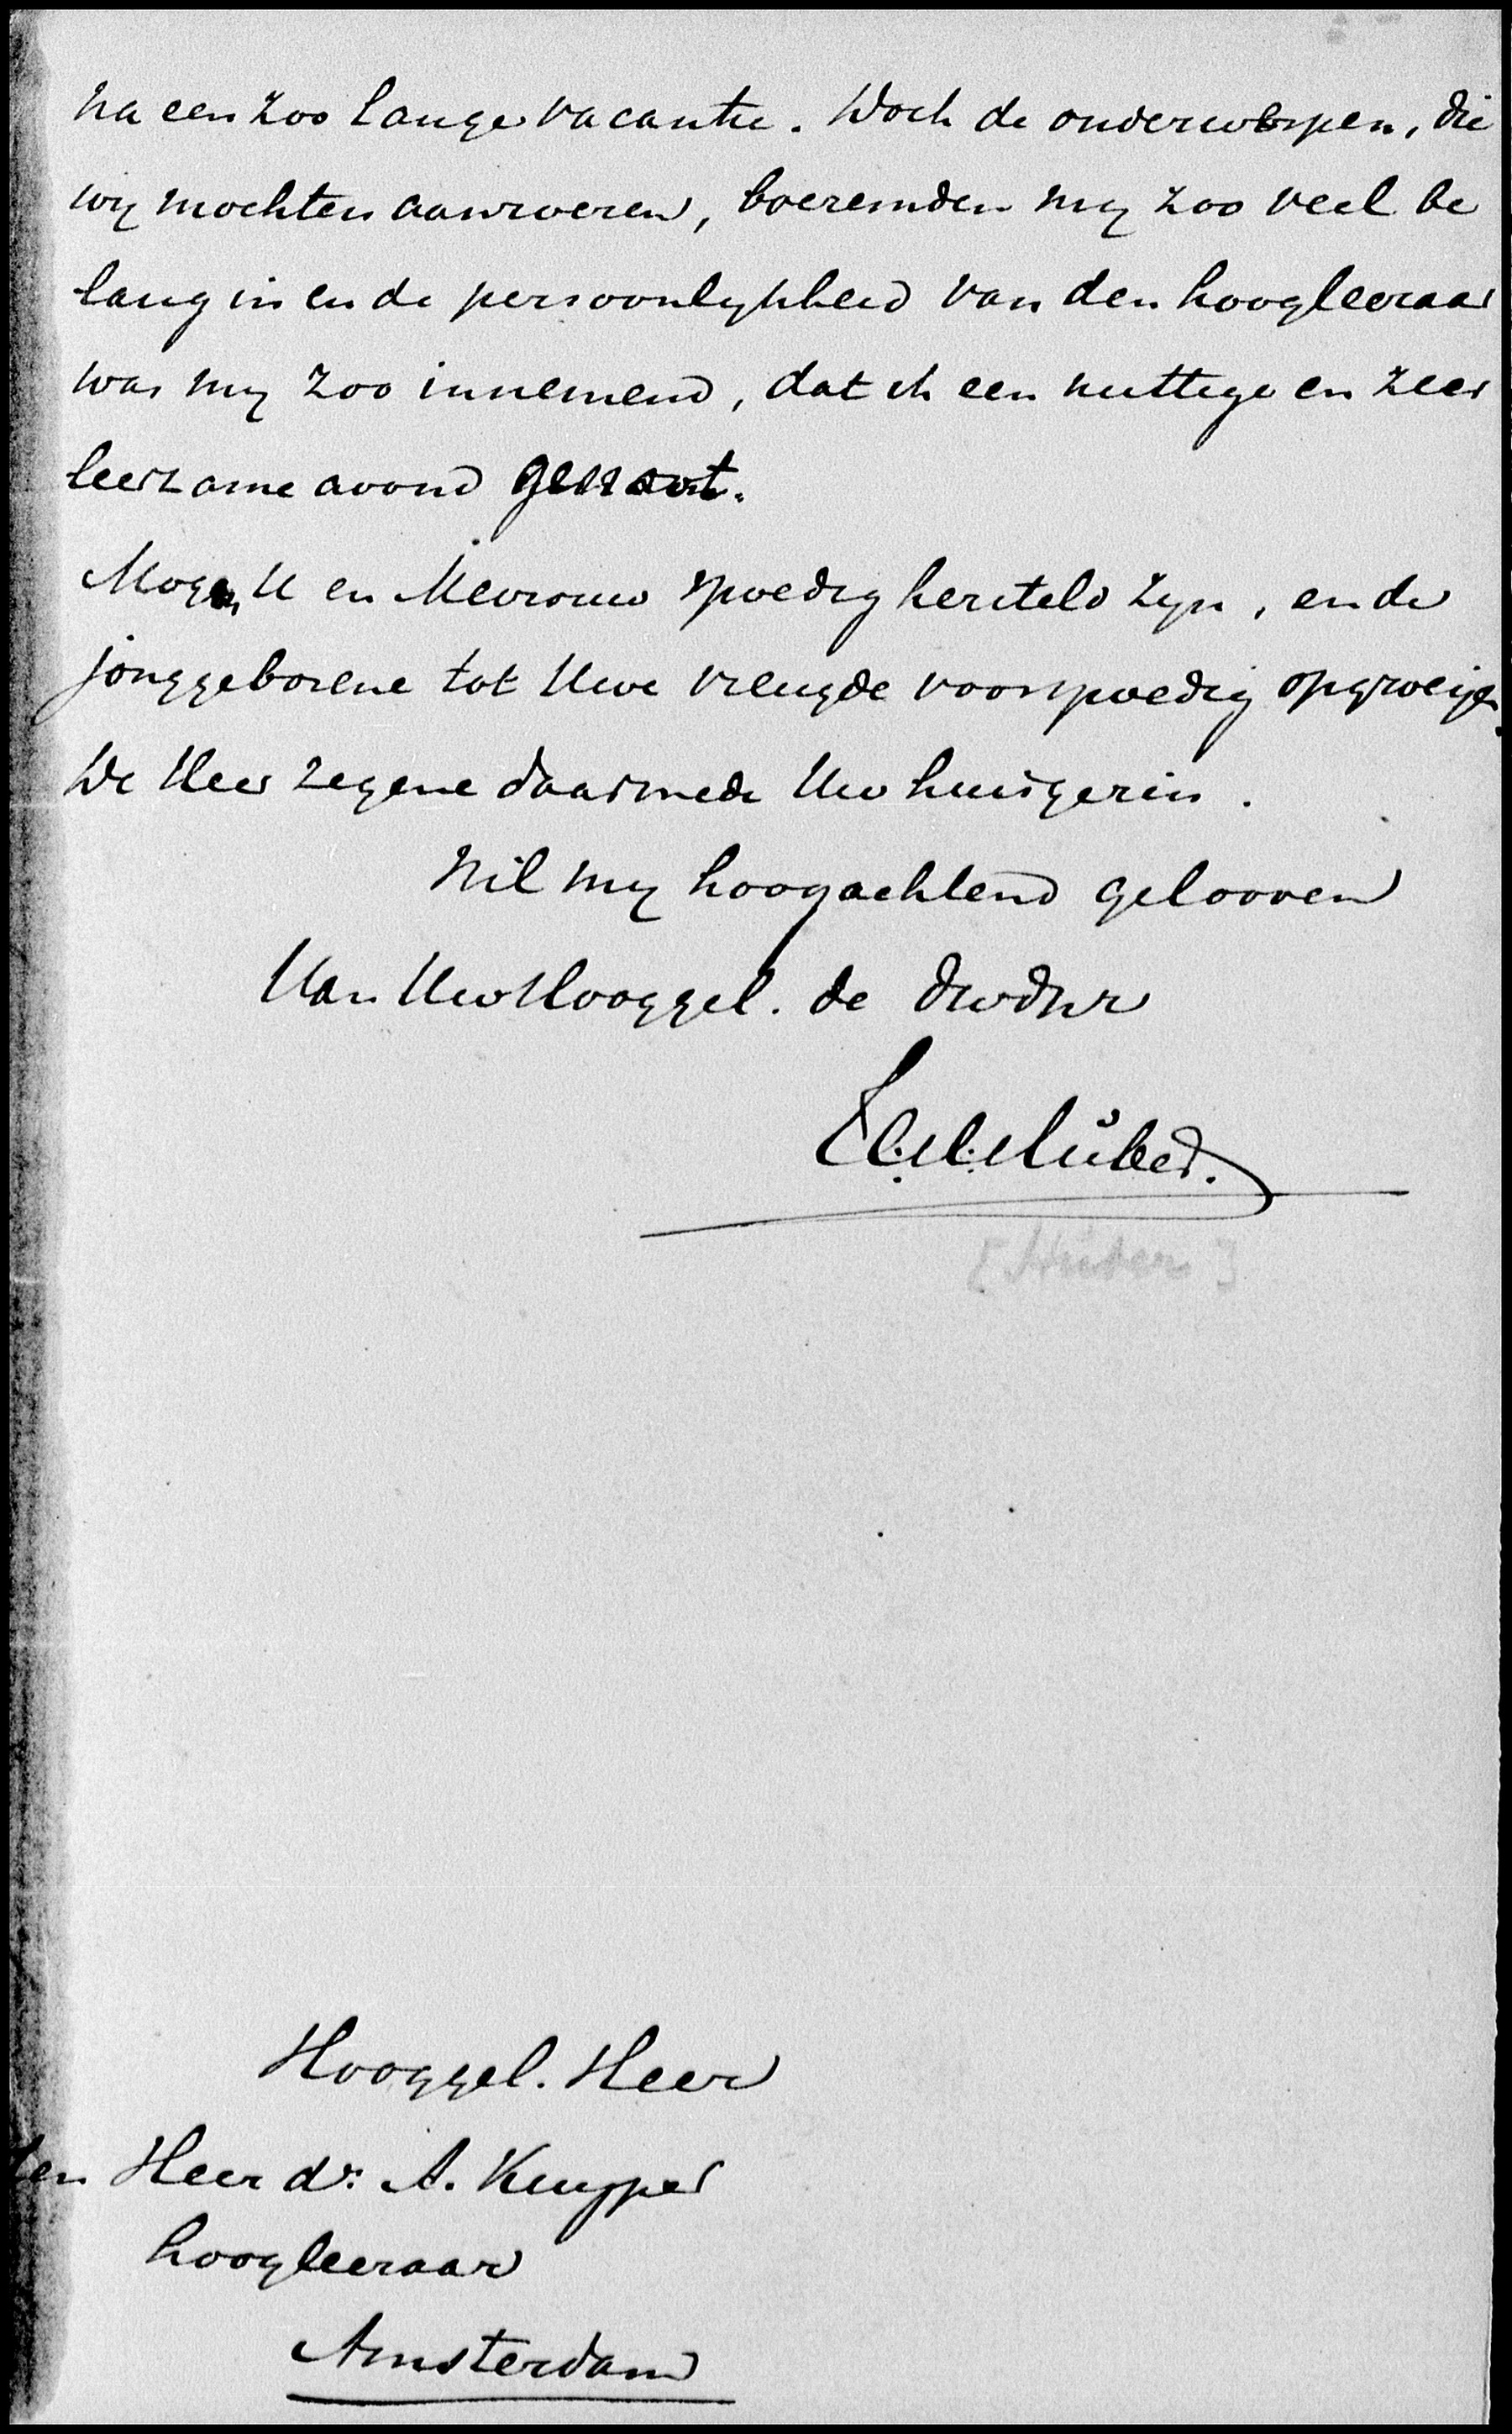 na een zoo lange vacantie. Doch de onderwerpen, die
wy mochten aanroeren, boezemden my zoo veel be
lang in en de persoonlykheid van den hoogleeraar
was my zoo innemend, dat ik een nuttige en zeer
leerzame avond genoot.
Mogen U en Mevrouw spoedig hersteld zyn, en de
jonggeborene tot Uwe vreugde voorspoedig opgroeijen.
De Heer zegene daarmede Uw huisgezin.
Wil my hoogachtend gelooven
Van UwHooggel. de dwdnr
[Huber]
Hooggel. Heer
den Heer dr. A. Kuyper
hoogleeraar
Amsterdam